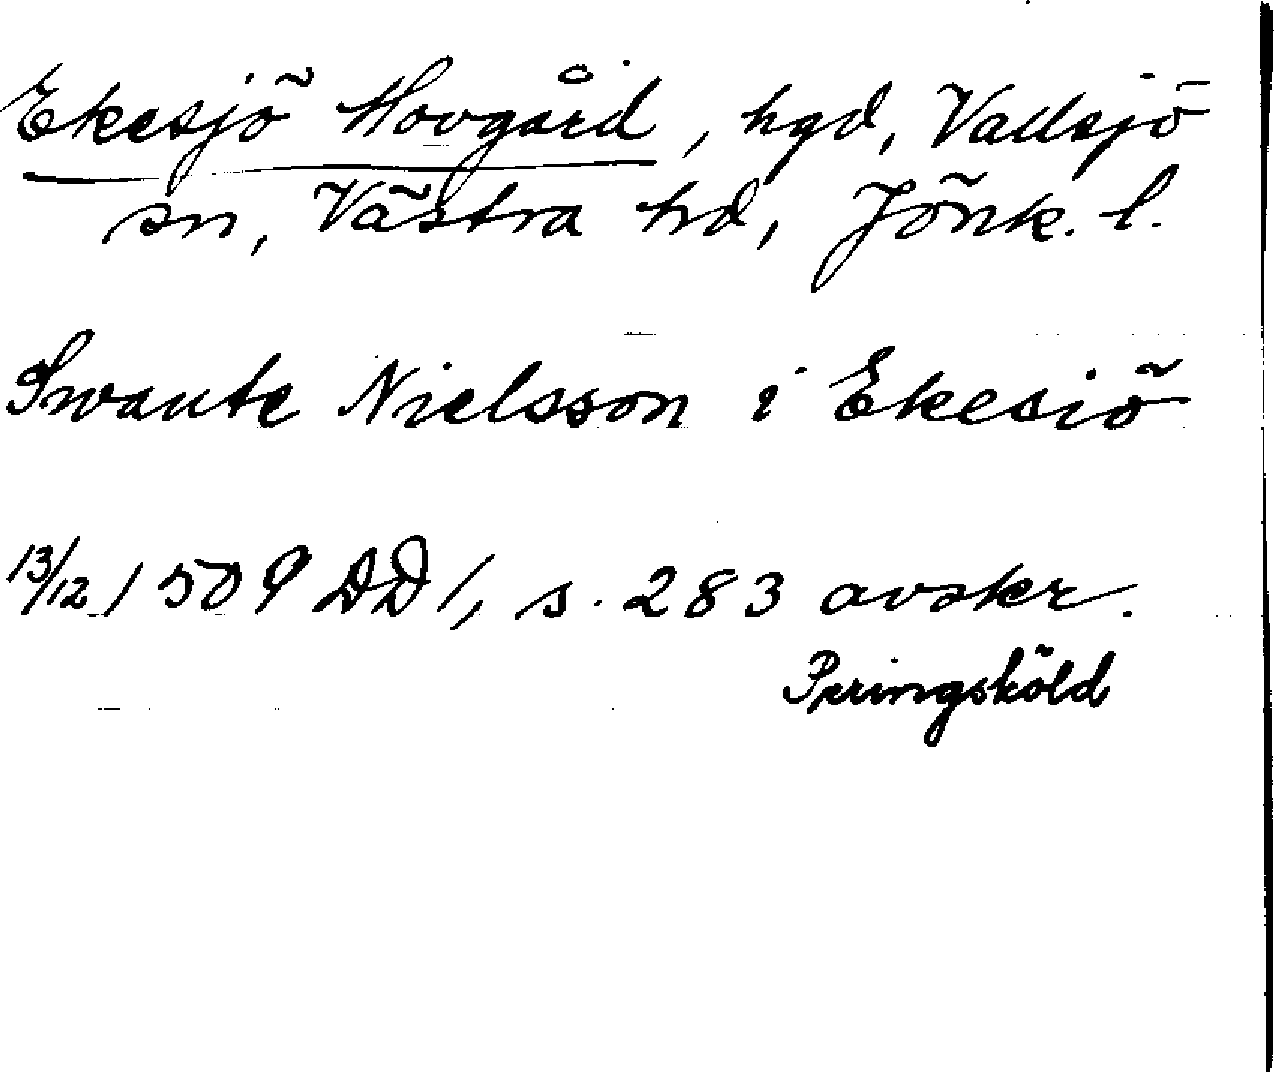 Ekesjö Hovgård, hgd, Vallsjö
sn, Västra hd, Jönk. l.
Swante Nielsson i Ekesiö
13/12 1509 DD1, s. 283 avskr.
Peringsköld